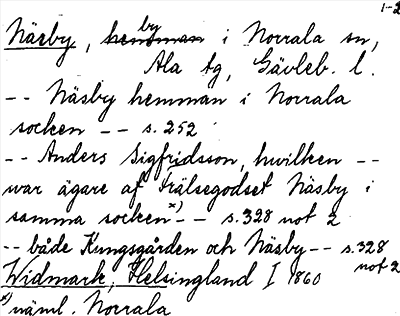 1-2
Näsby, by i Norrala sn,
Ala tg, Gävleb. l.
-- Näsby hemman i Norrala
socken -- s. 252
-- Anders Sigfridsson, hwilken --
war ägare af Frälsegodset Näsby i
samma socken x) -- s. 328 not 2
-- både Kungsgården och Näsby -- s. 328
not 2
Widmark, Helsingland I 1860
x) näml. Norrala